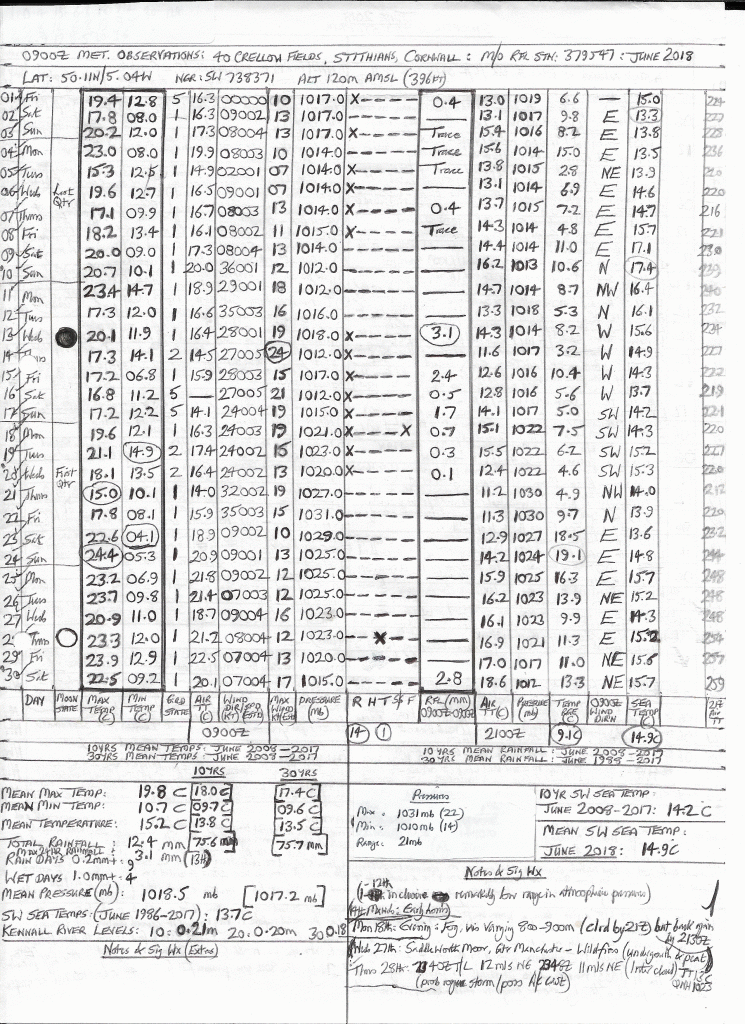 0900Z MET. OBSERVATIONS: 40 CRELLOW FIELDS, STITHIANS, CORNWALL: M/O RFL STN: 379547: JUNE 2018
LAT: 50.11N/5.04W NGR: SW 738371 ALT 120m AMSL (396FT)
01 Fri 19.4 12.8 5 16.3 00000 10 1017.0 X---- 0.4 13.0 1019 6.6 — 15.0
02 Sat 17.8 08.0 1 16.3 09002 13 1017.0 X---- — 13.1 1017 9.8 E 13.3
03 Sun 20.2 12.0 1 17.3 08004 13 1017.0 X---- Trace 15.4 1016 8.2 E 13.8
04 Mon 23.0 08.0 1 19.9 08003 10 1014.0 ----- Trace 15.6 1014 15.0 E 13.5
05 Tues 15.3 12.5 1 14.9 02001 07 1014.0 X---- Trace 13.8 1015 2.8 NE 13.9
06 Wed Last Qtr 19.6 12.7 1 16.5 09001 07 1014.0 X---- — 13.1 1014 6.9 E 14.6 220
07 Thurs 17.1 09.9 1 16.7 08003 13 1014.0 X---- 0.4 13.7 1015 7.2 E 14.7 216
08 Fri 18.2 13.4 1 16.1 08002 11 1015.0 X---- Trace 14.3 1014 4.8 E 15.7
09 Sat 20.0 09.0 1 17.3 08004 13 1014.0 ----- — 14.4 1014 11.0 E 17.1
10 Sun 20.7 10.1 1 20.0 36001 12 1012.0 ----- — 16.2 1013 10.6 N 17.4
11 Mon 23.4 14.7 1 18.9 29001 18 1012.0 ----- — 14.7 1014 8.7 NW 16.4
12 Tues 17.3 12.0 1 16.6 35003 16 1016.0 ----- — 13.3 1018 5.3 N 16.1 232
13 Wed 20.1 11.9 1 16.4 28001 19 1018.0 X---- 3.1 14.3 1014 8.2 W 15.6 234
14 17.3 14.1 2 14.5 27005 24 1012.0 X---- — 11.6 1017 3.2 W 14.9
15 Fri 17.2 06.8 1 15.9 28003 15 1017.0 X---- 2.4 12.6 1016 10.4 W 14.3 222
16 Sat 16.8 11.2 5 — 27005 21 1012.0 X---- 0.5 12.8 1016 5.6 W 13.7 219
17 Sun 17.2 12.2 5 14.1 24004 19 1015.0 X---- 1.7 14.1 1017 5.0 SW 14.2 221
18 Mon 19.6 12.1 1 16.3 24003 19 1021.0 X---X 0.7 15.1 1022 7.5 SW 14.3 220
19 Tues 21.1 14.9 2 17.4 24002 15 1023.0 X---- 0.3 15.5 1022 6.2 SW 15.2
20 Wed First Qtr 18.1 13.5 2 16.4 24002 13 1020.0 X---- 0.1 12.4 1022 4.6 SW 15.3 220
21 Thurs 15.0 10.1 1 14.0 32002 19 1027.0 ----- — 11.2 1030 4.9 NW 14.0 212
22 Fri 17.8 08.1 1 15.9 35003 15 1031.0 ----- — 11.3 1030 9.7 N 13.9 220
23 Sat 22.6 04.1 1 18.9 09002 10 1029.0 ----- — 12.9 1027 18.5 E 13.6 232
24 Sun 24.4 05.3 1 20.9 09001 13 1025.0 ----- — 14.2 1024 19.1 E 14.8 244
25 Mon 23.2 06.9 1 21.8 09002 12 1025.0 ----- — 15.9 1025 16.3 E 15.7 248
26 Tues 23.7 09.8 1 21.4 07003 12 1025.0 ----- — 16.2 1023 13.9 NE 15.2 248
27 Wed 20.9 11.0 1 18.7 09004 16 1023.0 ----- — 16.1 1023 9.9 E 14.3 248
28 Thurs 23.3 12.0 1 21.2 08004 12 1023.0 --X-- — 16.9 1021 11.3 E 15.2 254
29 Fri 23.9 12.9 1 22.5 07004 13 1020.0 ----- — 17.0 1017 11.0 NE 15.6 257
30 Sat 22.5 09.2 1 20.1 07004 17 1015.0 ----- 2.8 18.6 1012 13.3 NE 15.7 259
DAY MOON STATE MAX TEMP (C) MIN TEMP (C) GRD STATE AIR (C) WIND DIR/SPD (KT) (EST) MAX WIND PRESSURE (mb) R H T S F RFL (MM) 0900Z-0900Z AIR TT (C) PRESSURE (mb) TEMP RGE (C) 0900Z WIND DIRN SEA TEMP (C)
0900Z 14 1 2100Z 9.1C 14.9C
10YRS MEAN TEMPS: JUNE 2008-2017
30YRS MEAN TEMPS: JUNE 1988-2017
10 YRS MEAN RAINFALL: JUNE 2008-2017
30 YRS MEAN RAINFALL: JUNE 1988-2017
10YRS 30YRS
MEAN MAX TEMP: 19.8 C [18.0C] [17.4C]
MEAN MIN TEMP: 10.7 C [09.7C] [09.6C]
MEAN TEMPERATURE: 15.2 C [13.8C] [13.5C]
TOTAL RAINFALL: 12.4 mm [75.6mm] [75.7mm]
MAX 24HR RAINFALL: 3.1 mm (13th)
RAIN DAYS 0.2mm+: 9
WET DAYS 1.0mm+: 4
MEAN PRESSURE (mb): 1018.5 mb [1017.2 mb]
SW SEA TEMPS: (JUNE 1986-2017): 13.7C
KENNALL RIVER LEVELS: 10: 0.21m 20: 0.20m 30: 0.18
Notes & Sig Wx (Extras)
Pressures
Max = 1031mb (22)
Min = 1010mb (14)
Range: 21mb
10YR SW SEA TEMP:
JUNE 2008-2017: 14.2C
MEAN SW SEA TEMP:
JUNE 2018: 14.9C
Notes & Sig Wx
1-12th inclusive remarkably low range in atmospheric pressures
Mon 18th: Evening: Fog, vis varying 800-900m (clrd by 21Z) but back again by 2130Z
Wed 27th: Saddleworth Moor, Gtr Manchester - Wildfires (undergrowth & peat)
Thurs 28th: T/L 12 mls NE 11 mls NE (Inter cloud) TT 13C QNH 1023
(prob rogue storm